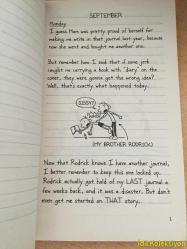 SEPTEMBER
Monday
I guess Mom was pretty proud of herself for
making me write in that journal last year, because
now she went and bought me another one.
But remember how I said that if some jerk
caught me carrying a book with "diary" on the
cover, they were gonna get the wrong idea?
Well, that's exactly what happened today.
SISSY!
(MY BROTHER RODRICK)
Now that Rodrick knows I have another journal,
I better remember to keep this one locked up.
Rodrick actually got hold of my LAST journal a
few weeks back, and it was a disaster. But don't
even get me started on THAT story.
1